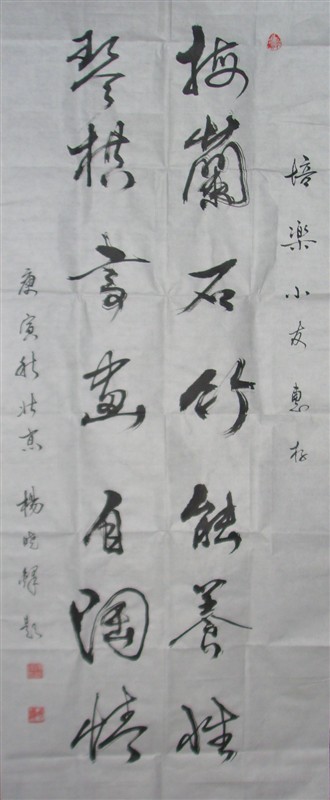 培樂小友惠存
梅蘭石竹能養性
琴棋書畫自陶情
庚寅秋北京 楊曉